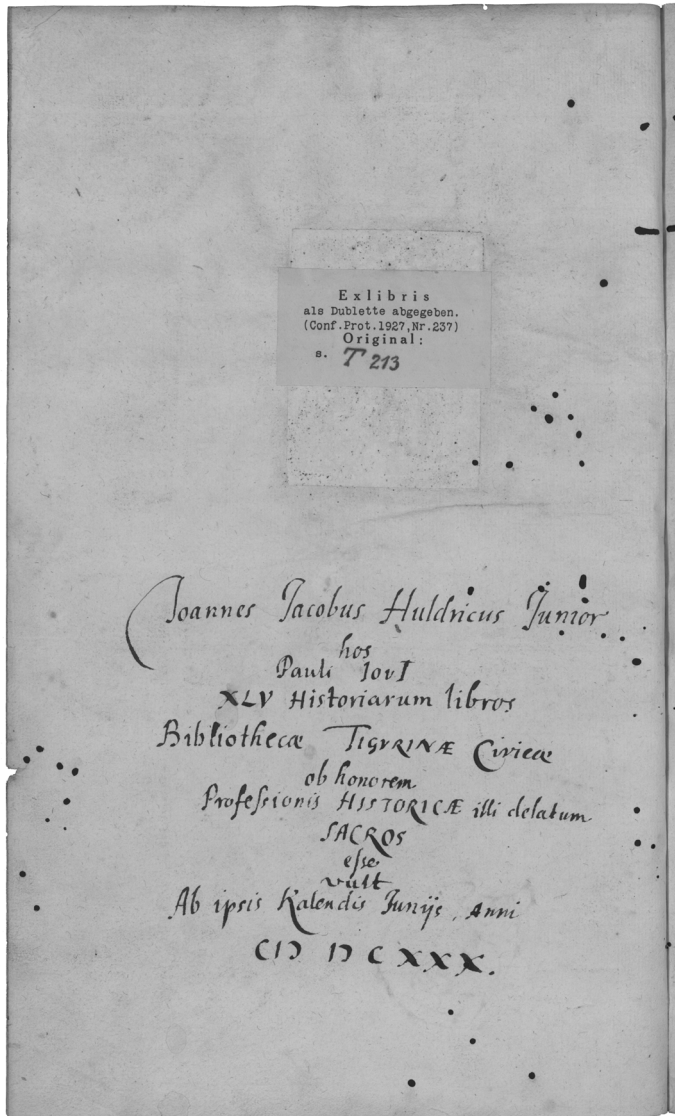 Exlibris
als Dublette abgegeben.
(Conf.Prot.1927,Nr.237)
Original:
s. T 213
Joannes Jacobus Huldricus Junior
hos
Pauli IovI
XLV Historiarum libros
Bibliothecæ TIGVRINÆ Civicæ
ob honorem
Professionis HISTORICÆ illi delatum
SACROS
esse
vult
Ab ipsis Kalendis Junijs, Anni
CIƆ IƆ C XXX.